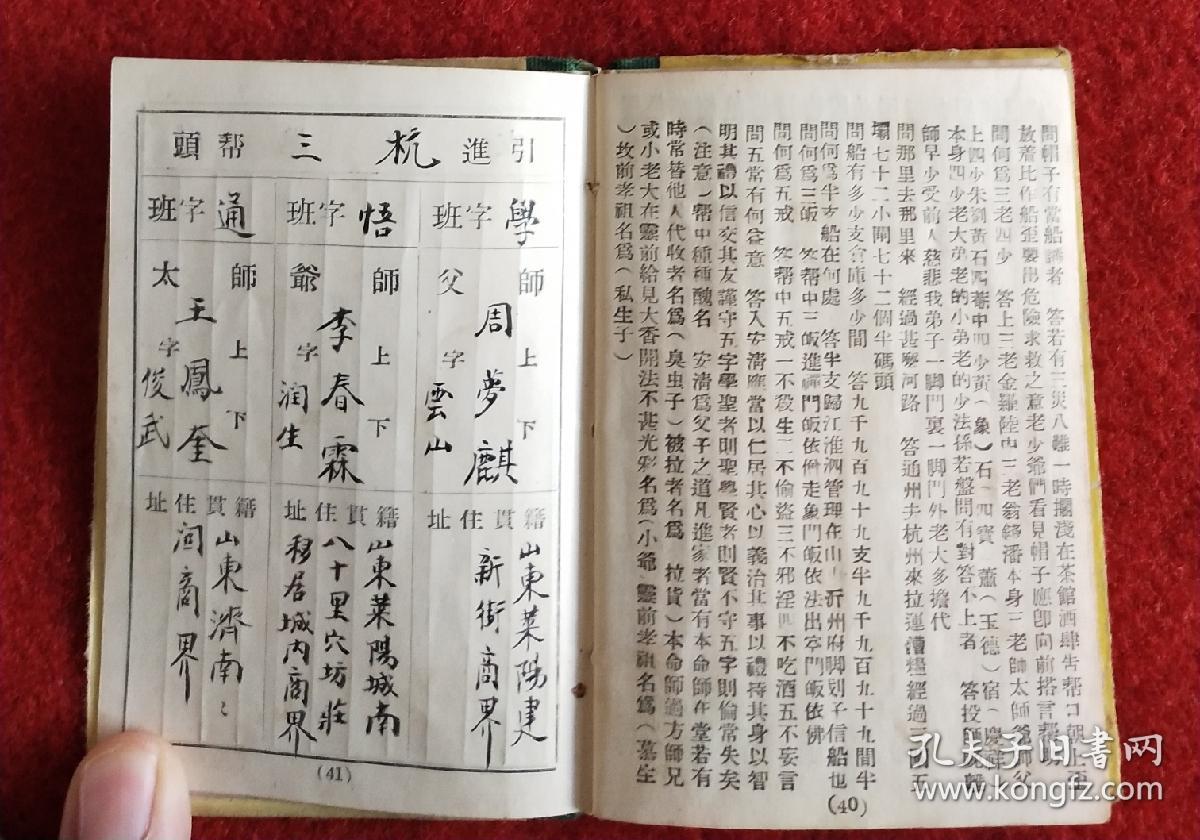 問帽子有當船講者 答若有三災八難一時擱淺在茶館酒肆告帮口朝
放着比作船歪要出危險求救之意老少爺們看見帽子應卽向前搭言帮
問何爲三老四少 答上三老金羅陸中三老翁錢潘本身三老師太師爺師父
上四少朱劉黃石四菴中四少黃(象)石(四寶)蕭(玉德)宿(慶祥)
本身四少老大弟老的小弟老的少法孫若盤問有對答不上者 答投師
師早少受前人慈悲我弟子一脚門裏一脚門外老大多擔代
問那里去那里來 經過甚麼河路 答通州去杭州來拉運漕糧經過
壩七十二小閘七十二個半碼頭
問船有多少支倉庫多少間 答九千九百九十九支半九千九百九十九間半
問何爲半支船在何處 答半支歸江淮泗管理在山東沂州府脚划子信船也
問何爲三皈 答帮中三皈進禪門皈依僧走象門皈依法出空門皈依佛
問何爲五戒 答帮中五戒一不殺生二不偷盜三不邪淫四不吃酒五不妄言
問五常有何含意 答入安淸應當以仁居其心以義治其事以禮待其身以智
明其禮以信交其友謹守五字學聖者則聖學賢者則賢不守五字則倫常失矣
(注意)帮中種種醜名 安淸爲父子之道凡進家者當有本命師在堂若有
時常替他人代收者名爲(臭虫子)被拉者名爲 拉貨)本命師過方師兄
或小老大在靈前給見大香開法不甚光彩名爲(小爺 靈前孝祖名爲(墓生
)坟前孝祖名爲(私生子)
(40)
引進 杭 三 帮頭
學字班
師父
上周下夢麒
字雲山
籍貫住址
山東萊陽建
新街商界
悟字班
師爺
上李下春霖
字潤生
籍貫住址
山東萊陽城南
八十里穴坊莊
移居城內商界
通字班
師太
上王下鳳奎
字俊武
籍貫住址
山東濟南
商界
(41)
孔夫子旧书网
www.kongfz.com